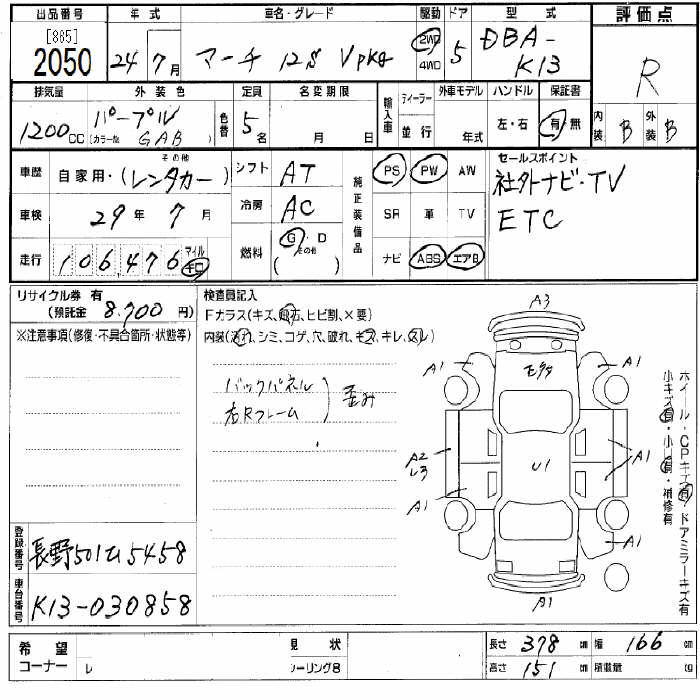 出品番号 年式 車名・グレード 駆動 ドア 型式 評価点
[865]
2050 24年 7月 マーチ 12S Vpkg 2WD 4WD 5 DBA-K13 R
排気量 外装色 定員 名変期限 輸入車 ディーラー 外車モデル ハンドル 保証書
1200cc パープル (カラーNo. GAB) 色替 5名 月 日 並行 年式 左・右 有 無 内装 B 外装 B
車歴 自家用・その他(レンタカー) シフト AT 純正装備品 PS PW AW セールスポイント
社外ナビ・TV
車検 29年 7月 冷房 AC SR 革 TV ETC
走行 106,476 マイル キロ 燃料 G・D その他( ) ナビ ABS エアB
リサイクル券 有
(預託金 8,700 円)
検査員記入
Fガラス(キズ、飛石、ヒビ割、×要)
※注意事項(修復・不具合箇所・状態等)
内装(汚れ、シミ、コゲ、穴、破れ、キズ、キレ、スレ)
バックパネル
右Rフレーム
歪み
A3
A1 モタ A1
A2
U1 A1
A1
A1
A1
ホイール・CPキズ有・ドアミラーキズ有
小キズ有・小凹有・補修有
登録番号 長野501 5458
車台番号 K13-030858
希望コーナー レ
現状
ーリング8
長さ 378 cm 幅 166 cm
高さ 151 cm 積載量 kg